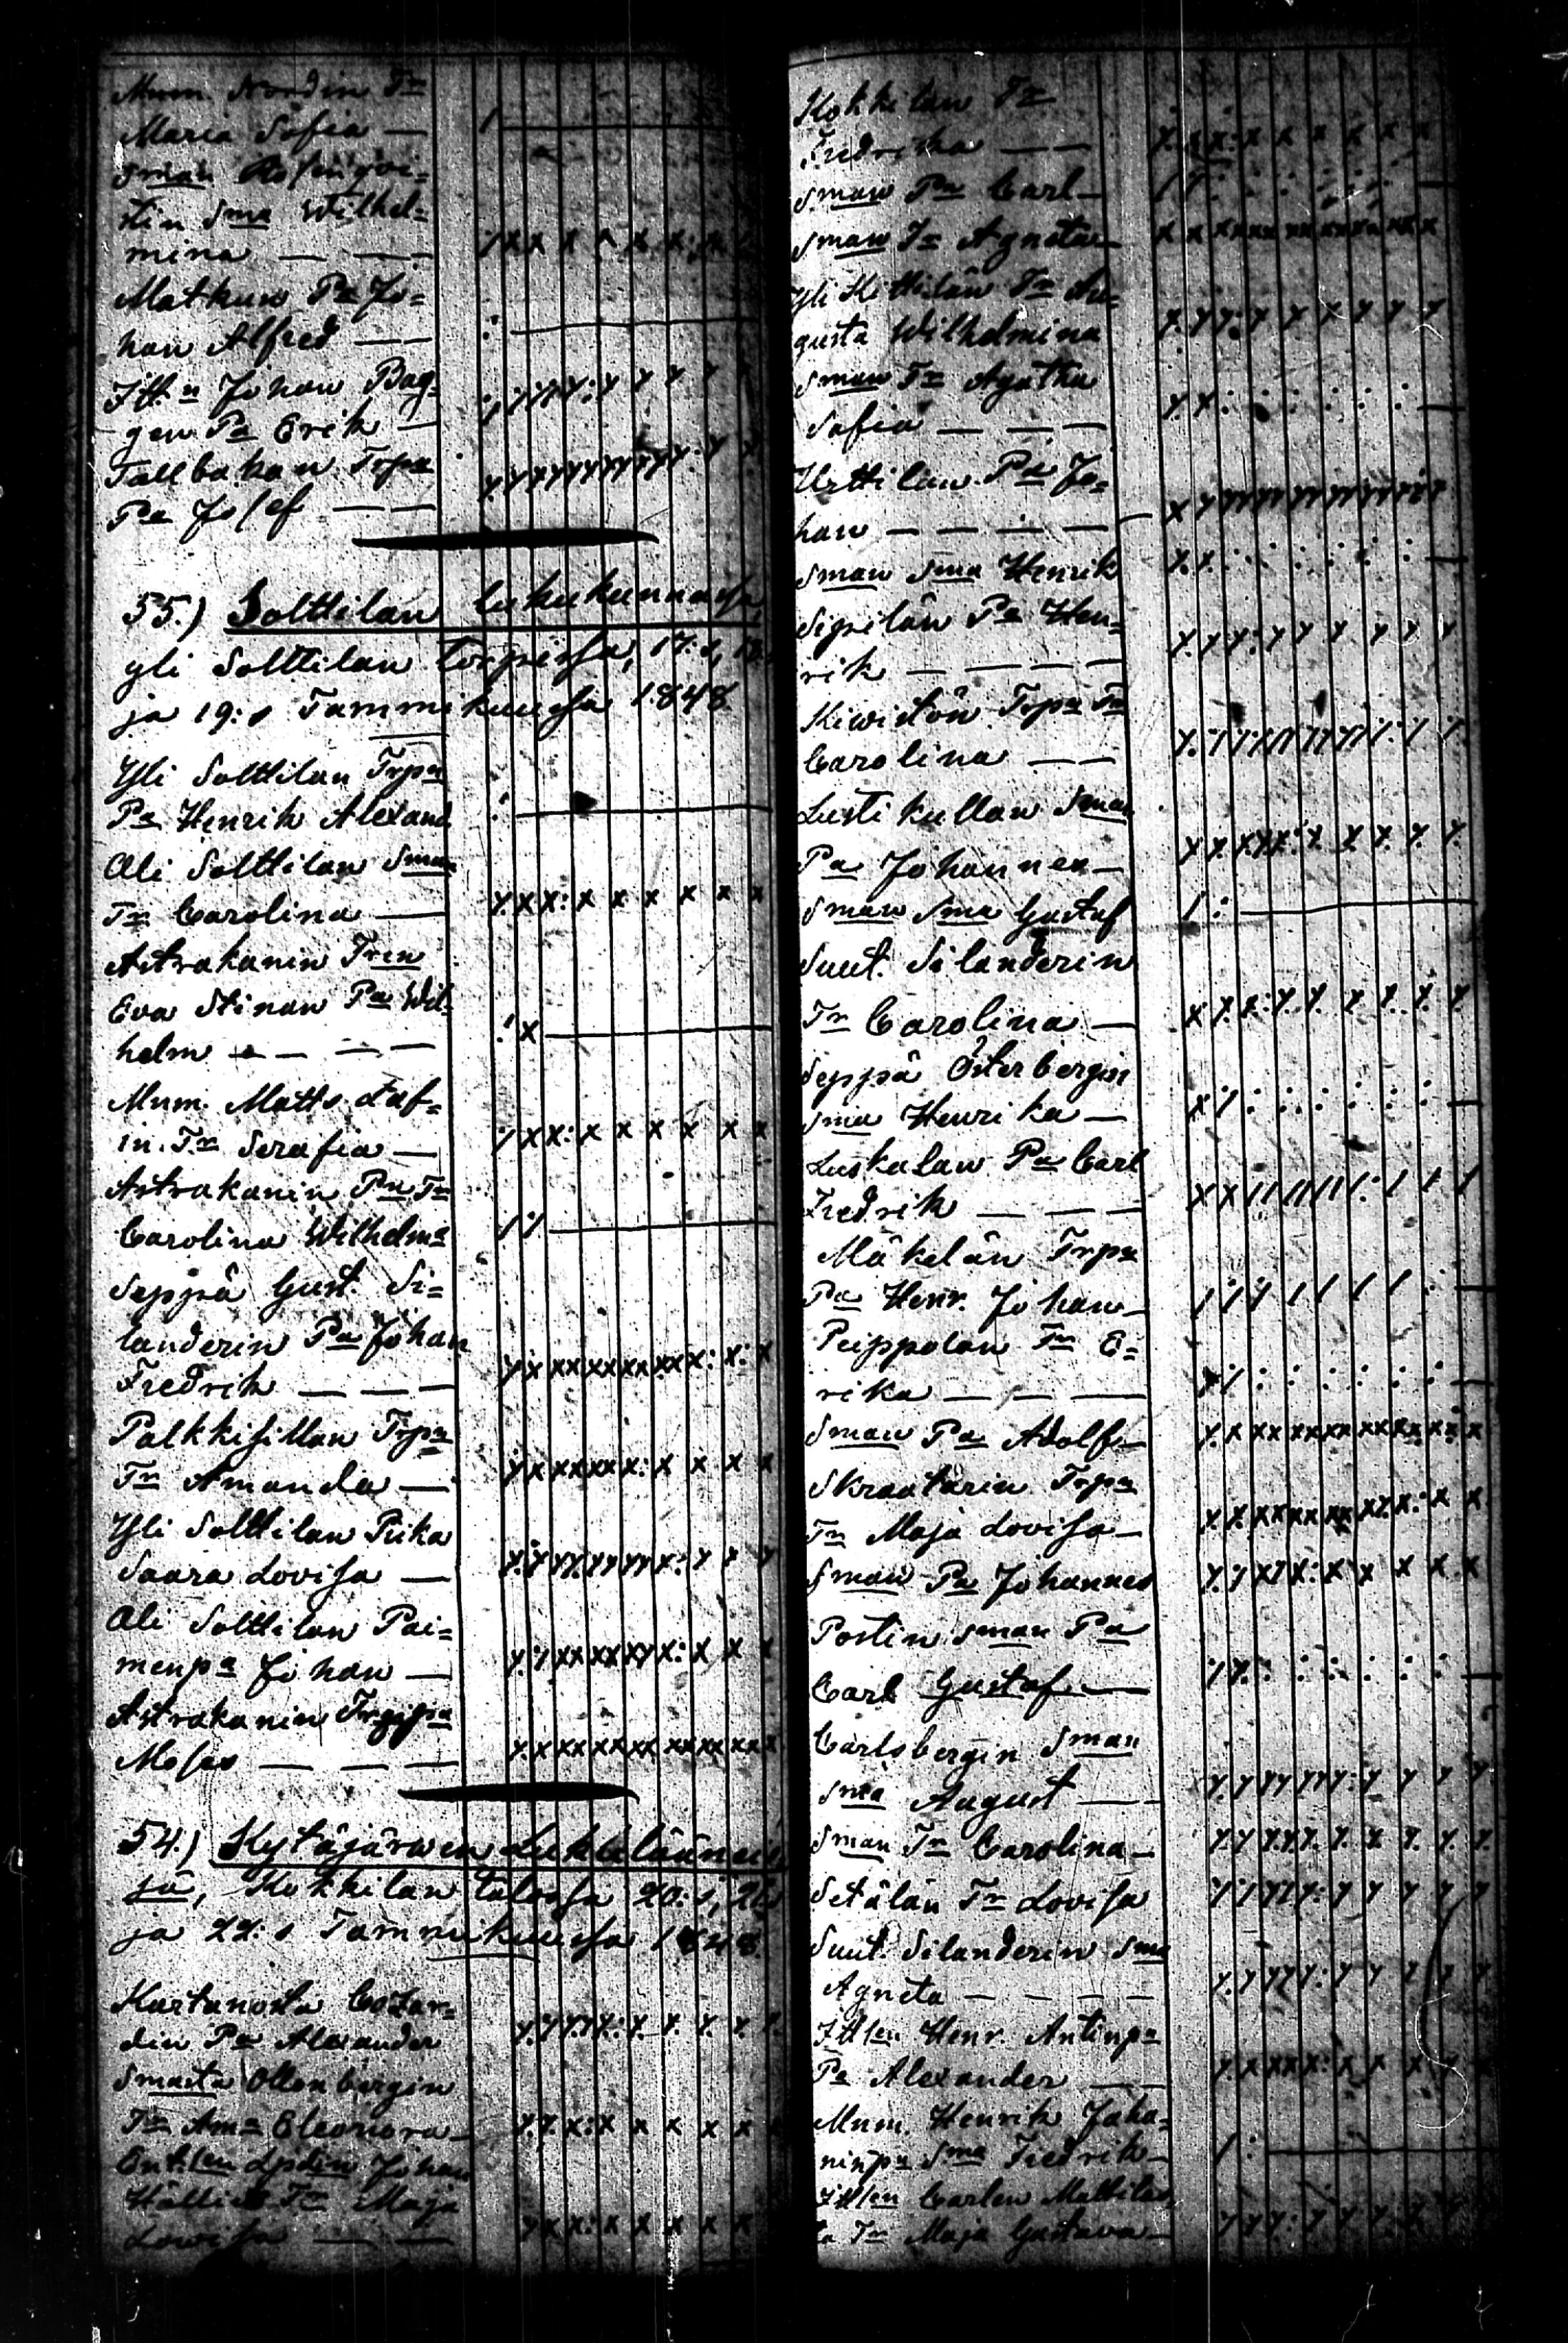 Mum. Nordin Tr
Maria Sofia —
Sman Rosenqvi=
stin Sma Wilhel=
mina — — —
Matkun Pa Jo=
han Alfred — —
Itlln Johan Bag=
gen Pa Erik —
Tallbakan Trpa
Pa Josef — —
55.) Solttilan lukukunnassa,
yli Solttilan torpissa, 17:s, 18:s
ja 19:s Tammikuussa 1848.
Yli Solttilan Trpa
Pa Henrik Alexand
Ali Solttilan Sman
Tr Carolina —
Astrakanin Tren
Eva Stinan Pa Wil=
helm — — — —
Mum. Matts Löf=
in Tr Serafia —
Astrakanin Pa Tr
Carolina Wilhelma
Seppä Gust. Si=
landerin Pa Johan
Fredrik — — —
Palkkisillan Trpa
Tr Amanda —
Yli Solttilan Piika
Saara Lovisa —
Ali Solttilan Pai=
menpa Johan —
Astrakanin
Moses — — —
54.) Kytäjärwen Lukulääneis=
sä, Kokkilan talossa 20:s, 21:s
ja 22:s Tammikuussa 1848.
Kartanosta
din Pa Alexander
Smasta Ollenbergin
Tr Ama Eleonora —
Johan
Tr Maja
Lowisa — —
Kokkilan Tr
Fredrika — —
Sman Pa Carl —
Sman Tr Agneta —
Yli Kittilän Tr Au=
gusta Wilhelmina
Sman Tr Agatha
Sofia — — —
Urttilan Pa Jo=
han — — — —
Sman Sma Henrik
Sipilän Pa Hen=
rik — — — —
Kiwistön Trpa Tr
Carolina — —
Lustikullan Sman
Pa Johannes —
Sman Sma Gustaf
Suut. Silanderin
Tr Carolina —
Seppä Österbergin
Sma Henrika —
Luskalan Pa Carl
Fredrik — — —
Mäkelän Trpa
Pa Henr. Johan —
Peippolan Tr E=
rika — — —
Sman Pa Adolf —
Skraatarin Trpa
Tr Maja Lovisa —
Sman Pa Johannes
Postin sman Pa
Carl Gustaf —
Carlsbergin Sman
Sma August —
Sman Tr Carolina —
Setälän Tr Lovisa
Suut. Silanderin Sma
Agneta — — — —
Itllen Henr. Antinpa
Pa Alexander — —
Mum. Henrik Juha=
ninpa Sma Fredrik —
Itllen Carlen Mattila=
Tr Maja Gustava —